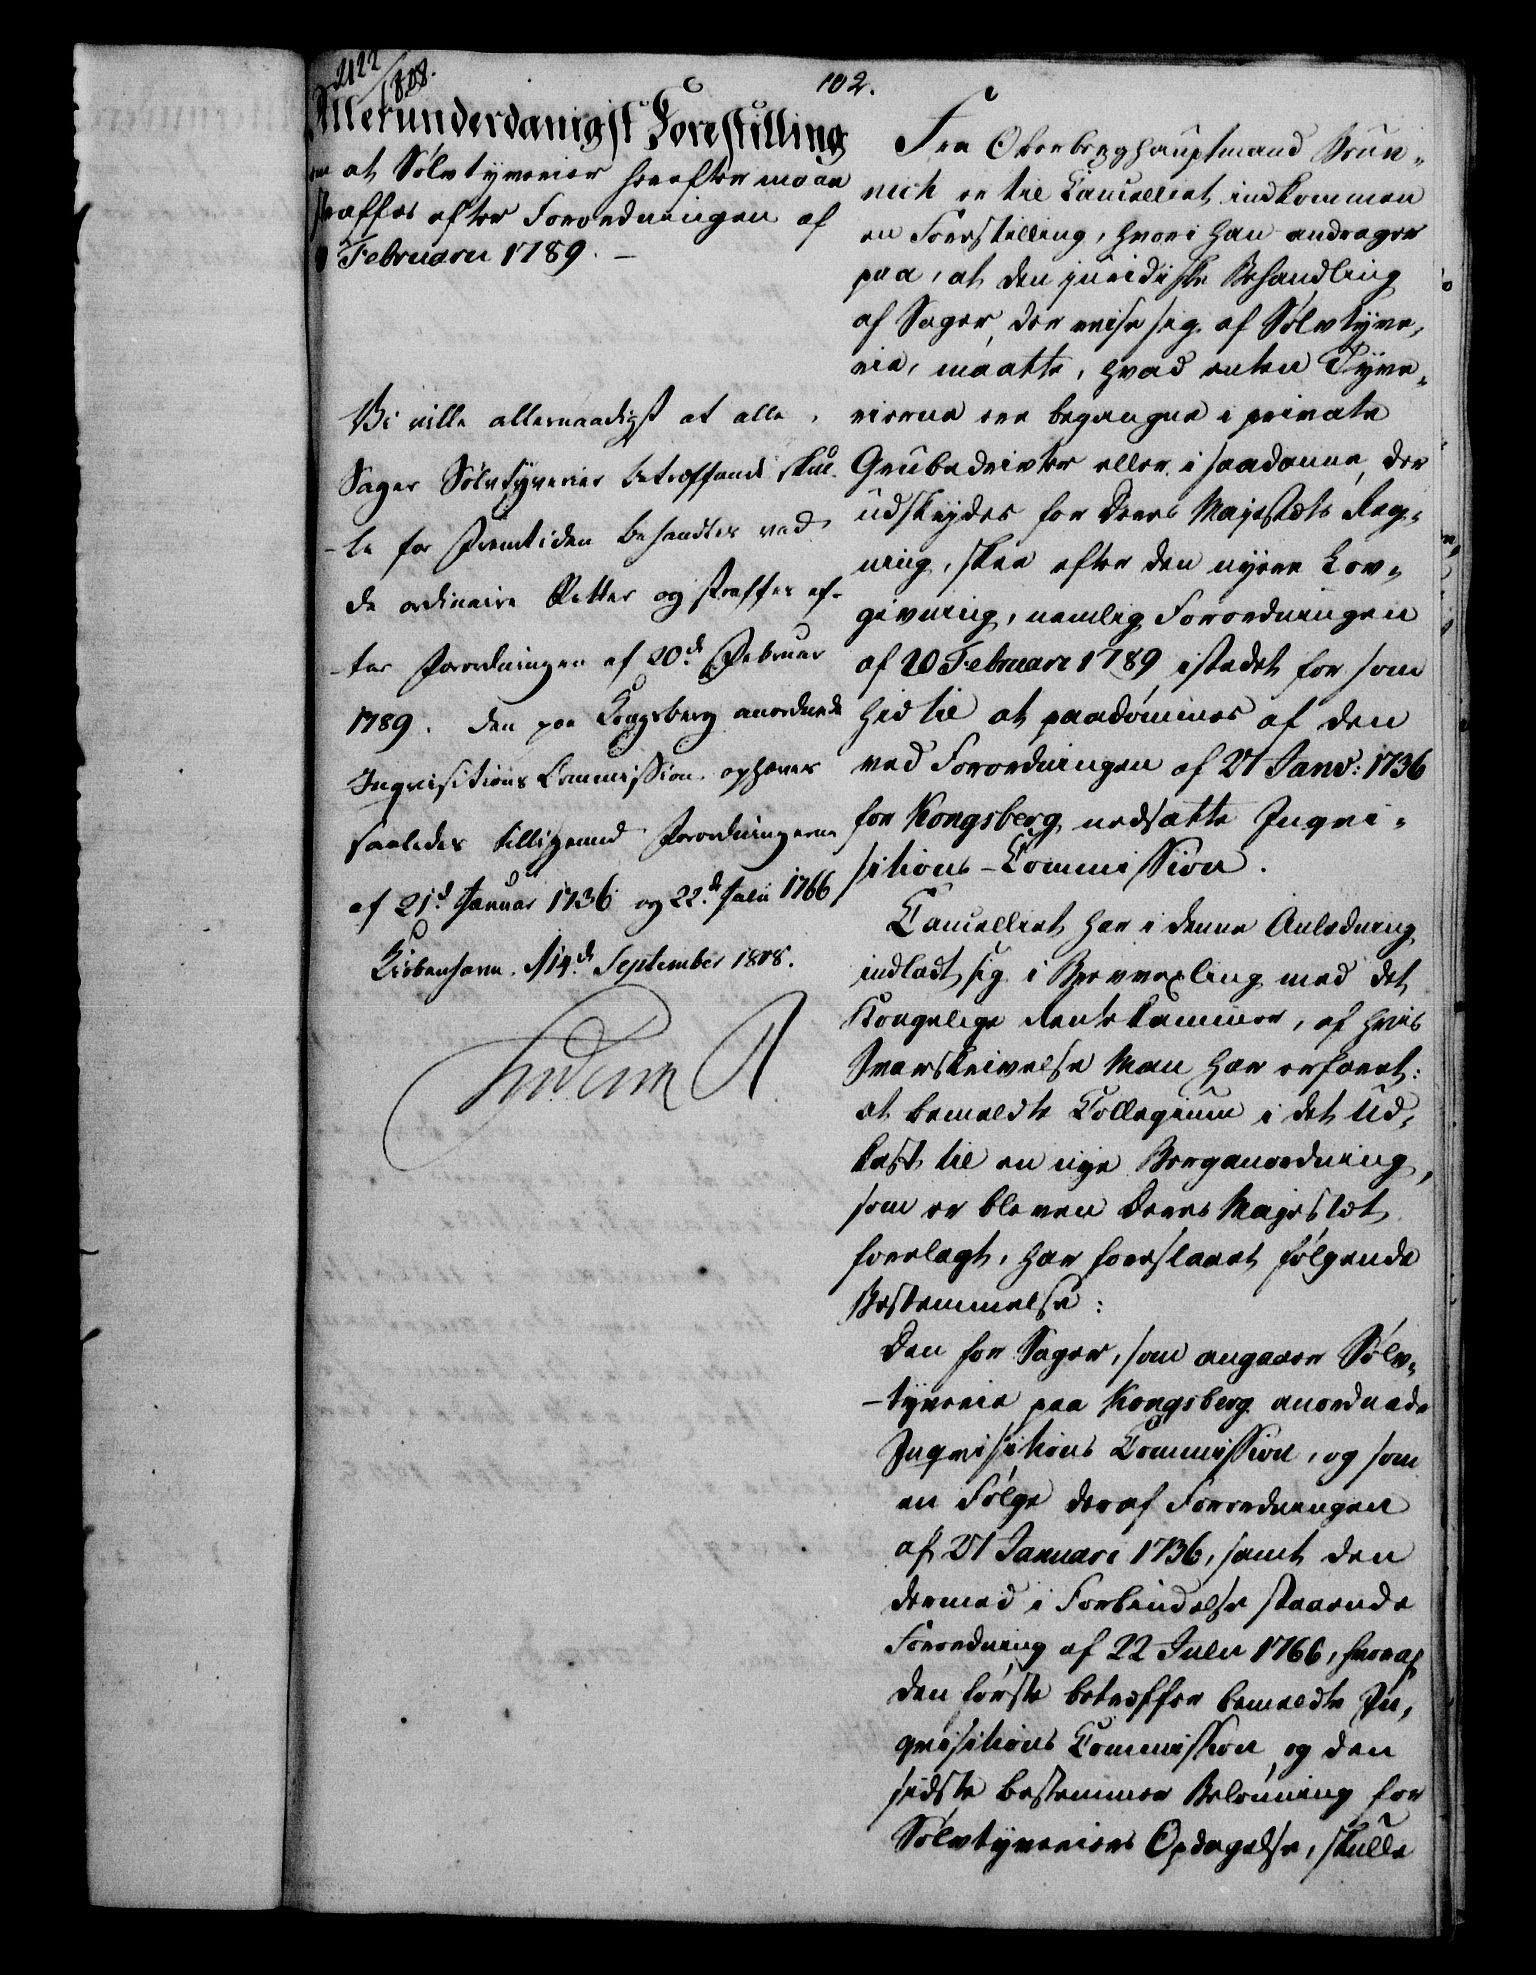 2122/1808.
102.
Allerunderdanigst Forestilling
om at Sølvtyverier herefter maae
straffes efter Forordningen af
Februarii 1789. —
Vi ville allernaadigst at alle
Sager Sølvtyverier betræffende skul-
-le for Fremtiden behandles ved
de ordinaire Retter og straffes ef-
-ter Forordningen af 20d. Februar
1789. Den paa Kongsberg anordnede
Inqvisitions Commission ophæves
saaledes tilligemed Forordningerne
af 21d. Januar 1736 og 22d. Julii 1766
Kiøbenhavn. d. 14d. September 1808.
Frederik R
Fra Oberberghauptmand Brün-
nich er til Cancelliet indkommen
en Forestilling, hvori han andrager
paa, at den juridiske Behandling
af Sager, der reise sig af Sølvtyve-
rie, maatte, hvad enten Tyve-
rierne ere begangne i private
Grubedrivter eller i saadanne, der
udskydes for Deres Majestæts Reg-
ning, skee efter den nyere Lov-
givning, nemlig Forordningen
af 20 Februari 1789 istedet for som
hidtil at paadømmes af den
ved Forordningen af 21 Janv: 1736
for Kongsberg nedsatte Inqvi-
sitions-Commission.
Cancelliet har i denne Anledning
indladt sig i Brevvexling med det
Kongelige Rentekammer, af hvis
Svarskrivelse Man har erfaret:
at bemeldte Collegium i det Ud-
kast til en nye Berganordning,
som er bleven Deres Majestæt
forelagt, har foreslaaet følgende
Bestemmelse:
Den for Sager, som angaaer Sølv-
-tyverie paa Kongsberg anordnede
Inqvisitions Commission, og som
en Følge deraf Forordningen
af 21 Januari 1736, samt den
dermed i Forbindelse staaende
Forordning af 22 Julii 1766, hvoraf
den første betræffer bemeldte In-
qvisitions Commission, og den
sidste bestemmer Belønning for
Sølvtyveriers Opdagelse, skulle